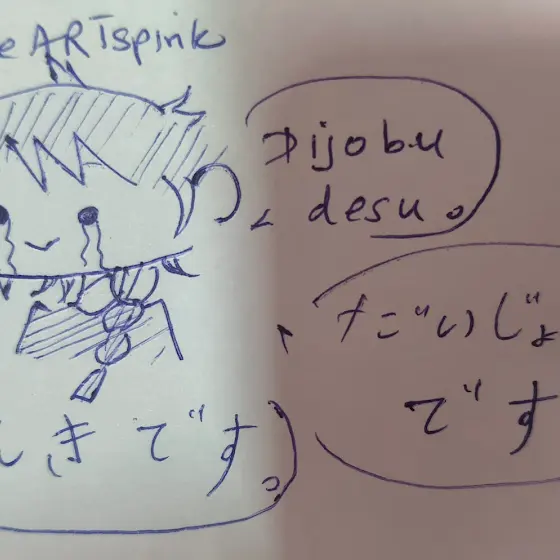 eARTspink
Dijobu
desu。
だいじょ
です
んきです。